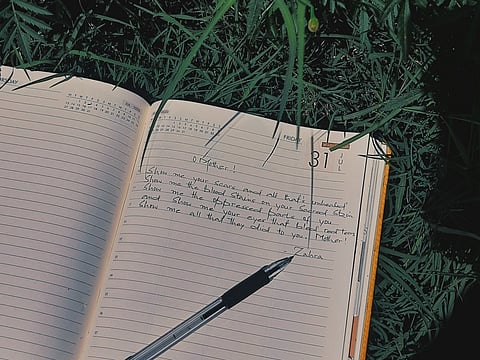 FRIDAY
31
JUL
O Mother!
Show me your scars and all that's unhealed
Show me the blood stains on your sacred skin
Show me the oppressed parts of you
and show me your eyes that blood
Show me all that they did to you, Mother!
- Zahra